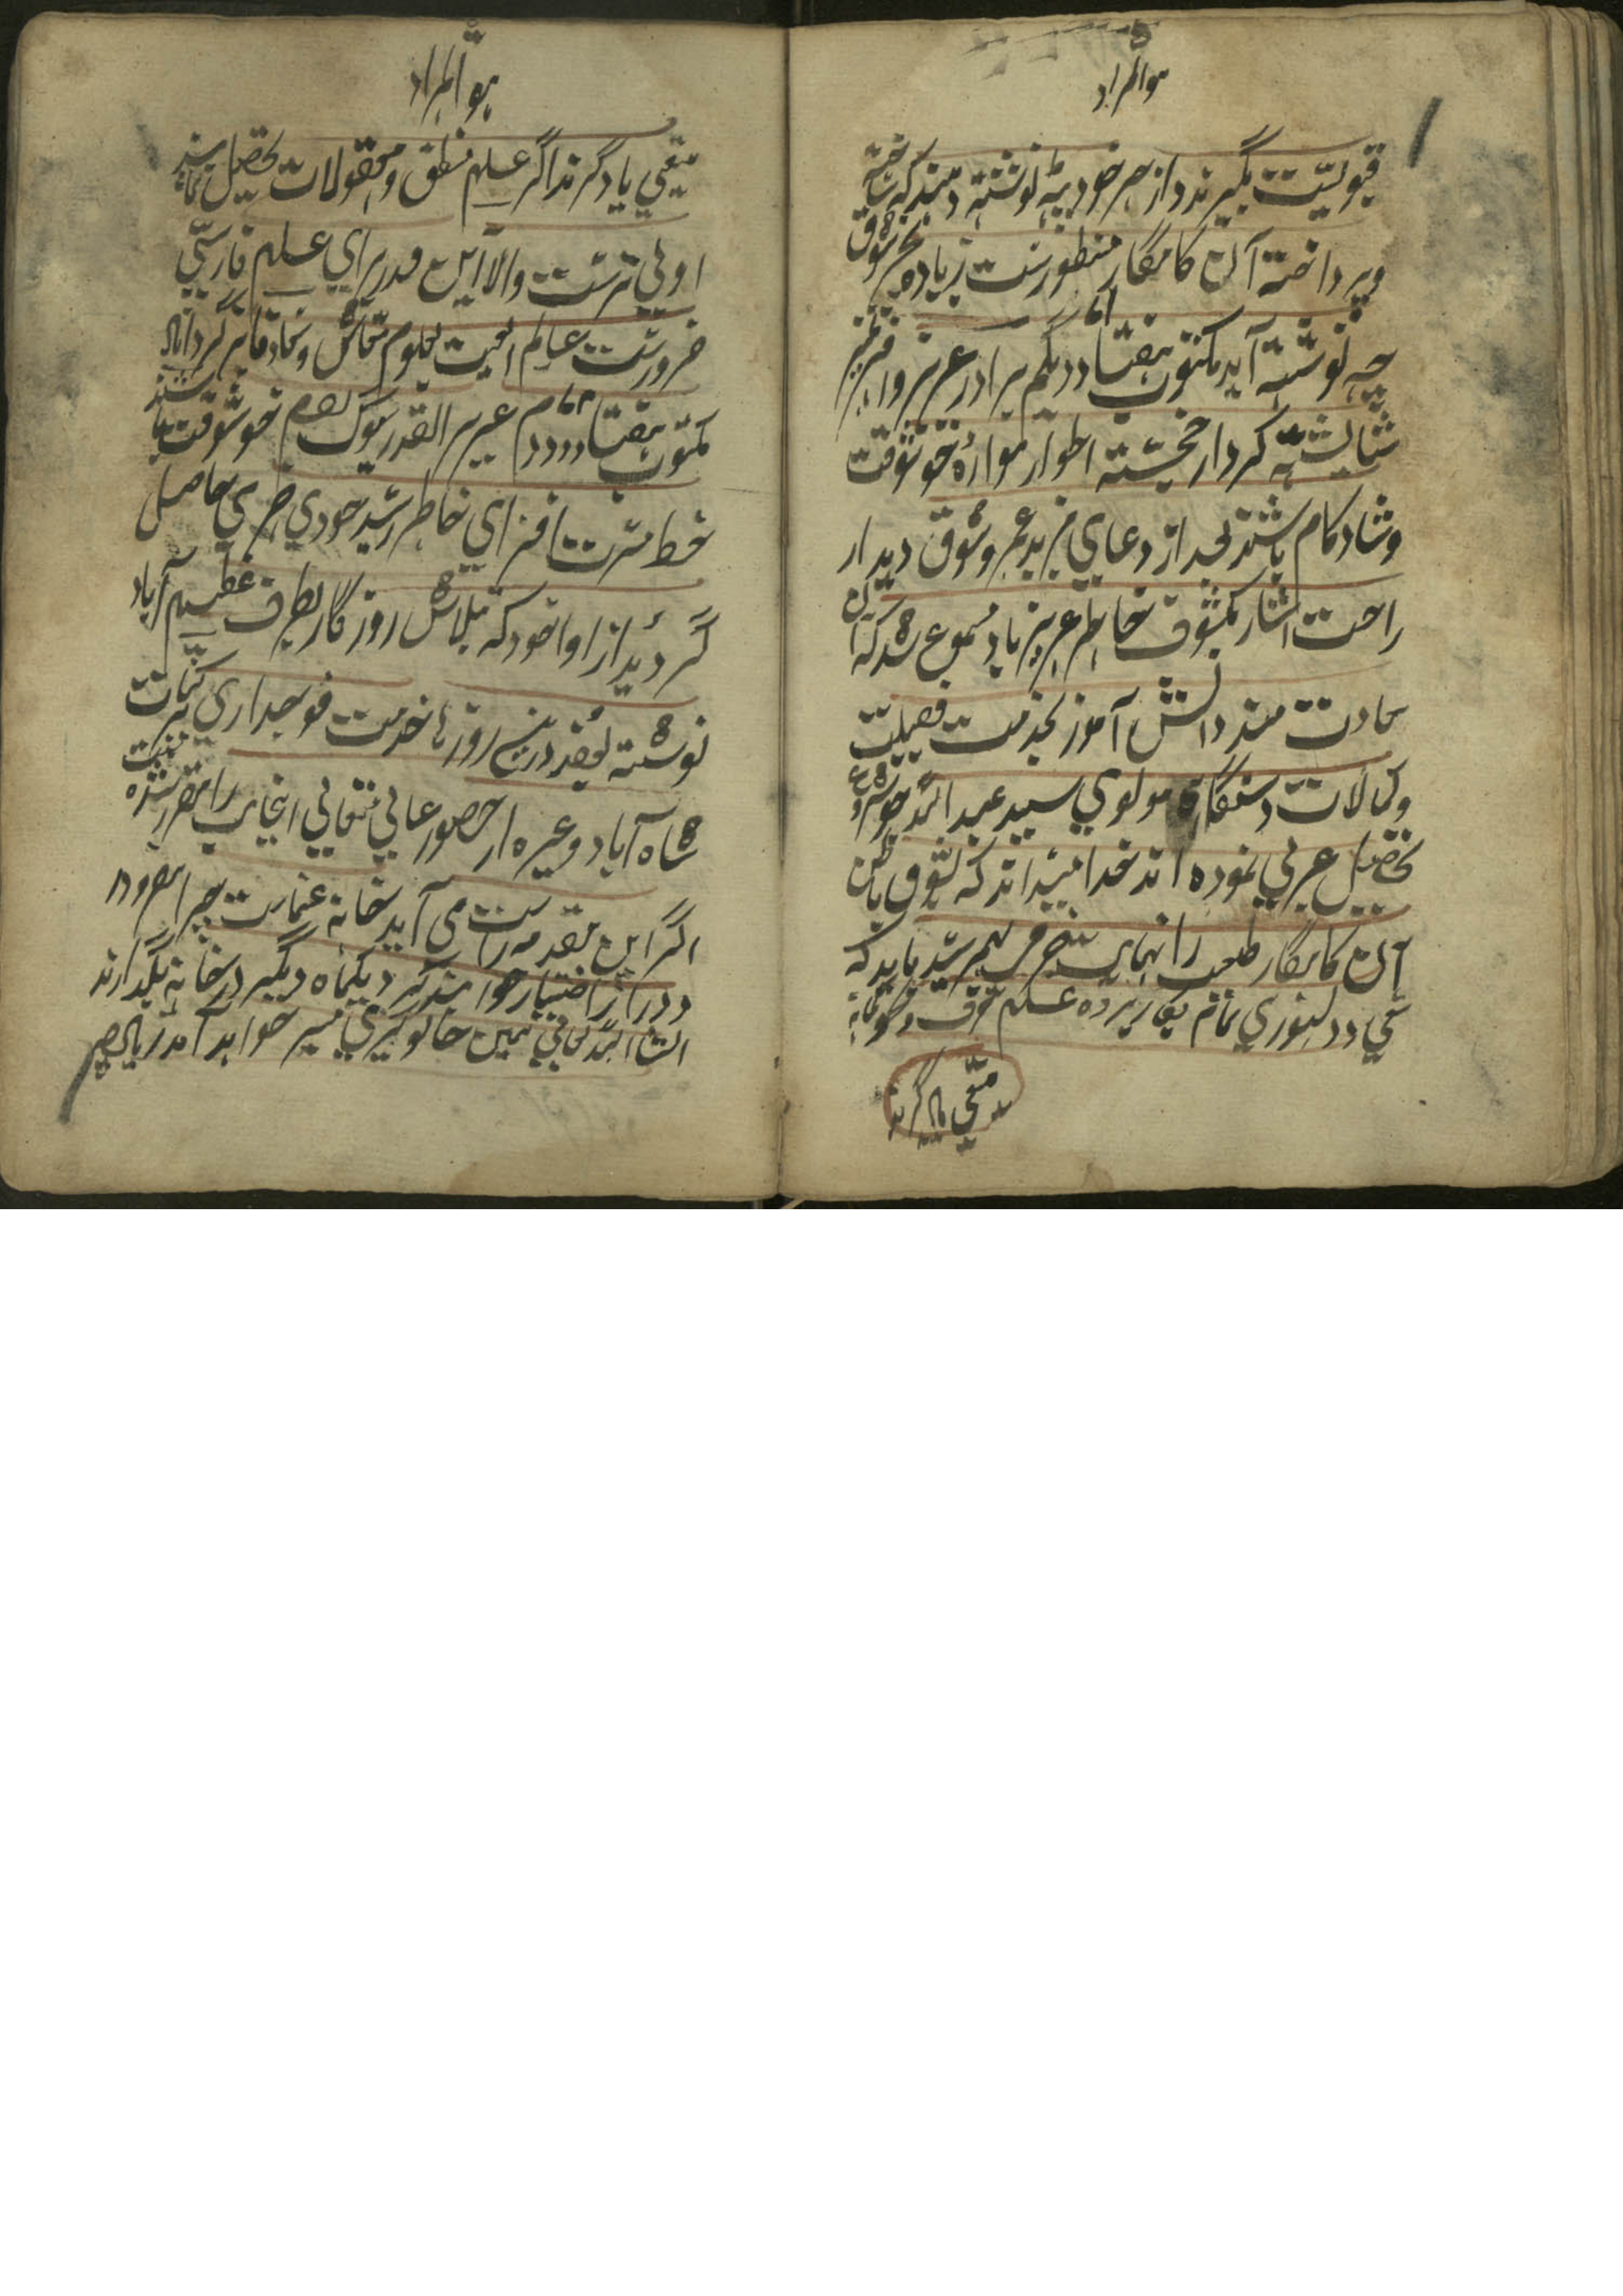 هوالمراد
قبولیت بگیرند و از مهر خود پته نوشته دهند که ساخته
و پرداخته آن کامگار منظورست زیاده بجز شوق
چه نوشته آید مکتوب هفتاد و یکم برادر عزیز وافر تمیز
۷۱
شایسته کردار خجسته اطوار همواره خوشوقت
و شادکام باشند بعد از دعای مزید عمر و شوق دیدار
راحت آثار مکشوف خاطر عزیز باد مسموع شد که آن
سعادت مند دانش آموز بخدمت فضیلت
و کمالات دستگاه مولوی سید عبد الله جیو شروع
تحصیل عربی نموده اند خدا میداند که بشوق باطن
آن کامگار طلعت را نهایت فرح بهم رسید باید که
سعی و دلسوزی تمام بکار برده علم صرف و نحو
متقی یاد گیرند
هوالمراد
متقی یاد گیرند اگر علم منطق و معقولات تحصیل نمایند
اولی ترست والا این قدر برای علم فارسی
ضرورست عالم الغیب بعلوم معاش و معاد فایز گرداناد
مکتوب هفتاد و دوم عزیز القدر من سلامت خوشوقت باشند
۷۲
خط مسرت افزای بخاطر رسید خورمی حاصل
گردید از اوا خود که بتلاش روزگار بطرف عظیم آباد
نوشته بودند درین روزها خدمت فوجداری
شاه آباد و غیره از حضور عالی متعالی اینجانب را مقرر شده
اگر این مقدمه راست می آید خانه عنایت چرا سفر دور
و دراز اختیار خواهند کرد یکماه دیگر در خانه بگذارند
انشاء الله تعالی همین جا نوکری میسر خواهد آمد زیاده